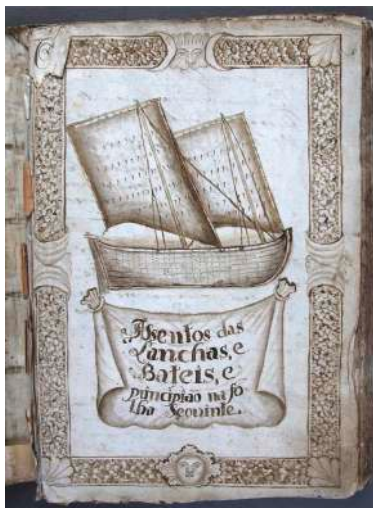 Assentos das
Lanchas, e
Bateis, e
principiaõ na fo
lha Seguinte.